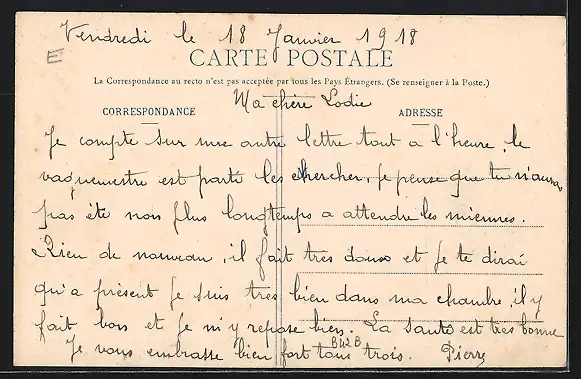 Vendredi le 18 Janvier 1918
E
CARTE POSTALE
La Correspondance au recto n'est pas acceptée par tous les Pays Étrangers. (Se renseigner à la Poste.)
Ma chère Lodie
CORRESPONDANCE
ADRESSE
Je compte sur une autre lettre tout a l'heure, le
vaguemestre est parti les chercher, je pense que tu n'auras
pas été non plus longtemps a attendre les miennes.
Rien de nouveau, il fait très doux et je te dirai
qu'a présent je suis très bien dans ma chambre, il y
fait bon et je m'y repose bien. La santé est très bonne
Je vous embrasse bien fort tous trois. Pierre
B42B